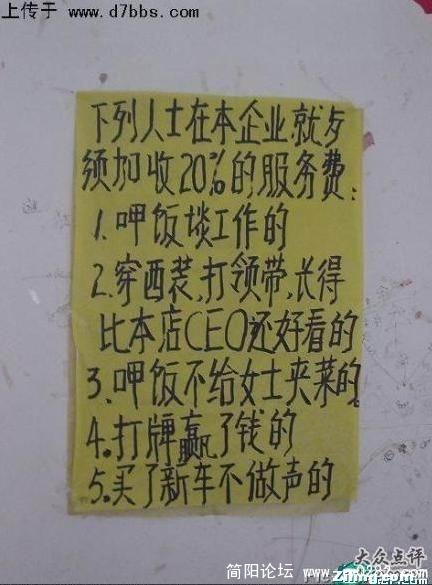 上传于 www.d7bbs.com
下列人士在本企业就歺
须加收20%的服务费:
1.呷饭谈工作的
2.穿西装,打领带,长得
比本店CEO还好看的
3、呷饭不给女士夹菜的。
4.打牌赢了钱的
5.买了新车不做声的
大众点评
简阳论坛